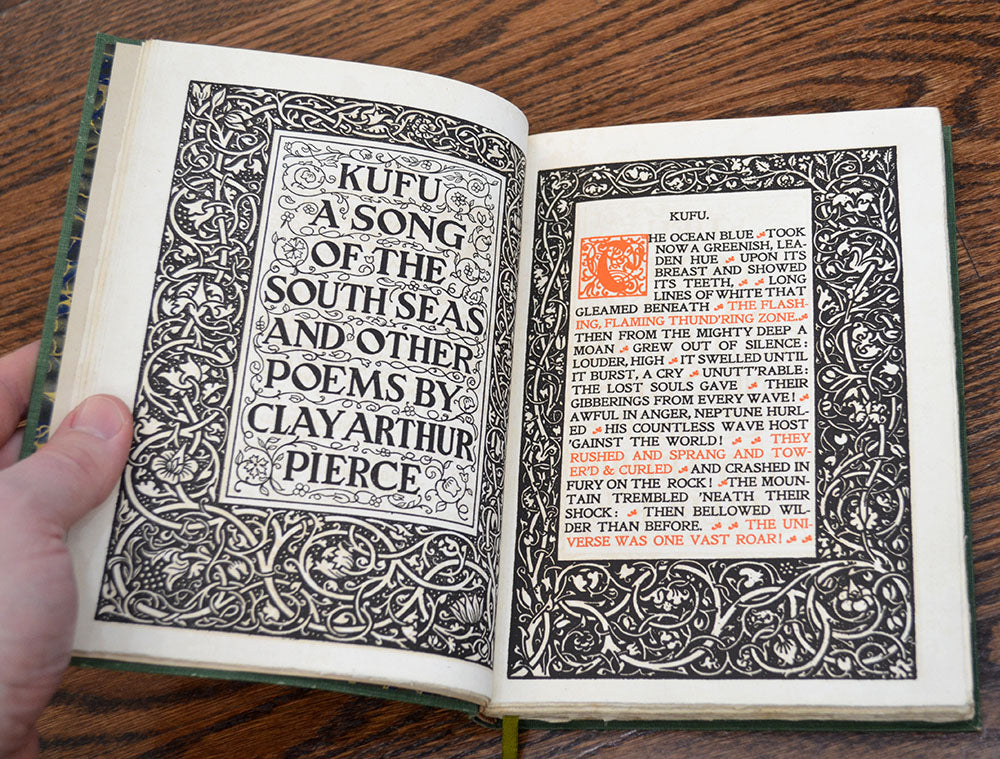 KUFU
A SONG
OF THE
SOUTH SEAS
AND OTHER
POEMS BY
CLAY ARTHUR
PIERCE
KUFU.
THE OCEAN BLUE TOOK
NOW A GREENISH, LEA-
DEN HUE UPON ITS
BREAST AND SHOWED
ITS TEETH, LONG
LINES OF WHITE THAT
GLEAMED BENEATH THE FLASH-
ING, FLAMING THUND'RING ZONE.
THEN FROM THE MIGHTY DEEP A
MOAN GREW OUT OF SILENCE:
LOUDER, HIGH IT SWELLED UNTIL
IT BURST, A CRY UNUTT'RABLE:
THE LOST SOULS GAVE THEIR
GIBBERINGS FROM EVERY WAVE!
AWFUL IN ANGER, NEPTUNE HURL-
ED HIS COUNTLESS WAVE HOST
'GAINST THE WORLD! THEY
RUSHED AND SPRANG AND TOW-
ER'D & CURLED AND CRASHED IN
FURY ON THE ROCK! THE MOUN-
TAIN TREMBLED 'NEATH THEIR
SHOCK: THEN BELLOWED WIL-
DER THAN BEFORE. THE UNI-
VERSE WAS ONE VAST ROAR!